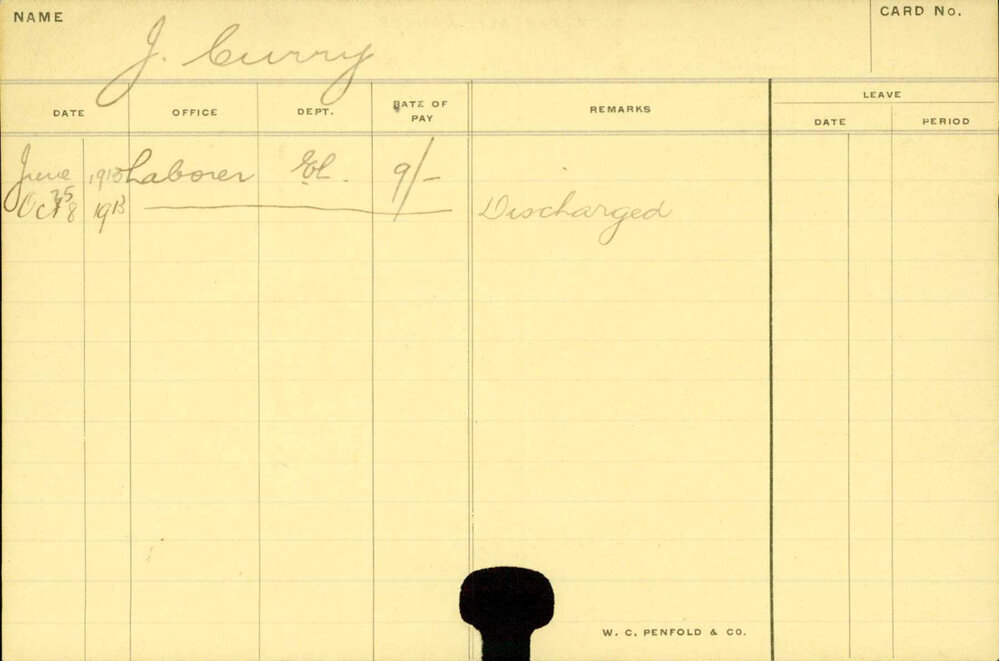 NAME
CARD No.
J. Curry
DATE OFFICE DEPT. RATE OF PAY REMARKS LEAVE
DATE PERIOD
June 1913 Laborer 9/-
25
Oct 8 1913 Discharged
W. C. PENFOLD & CO.